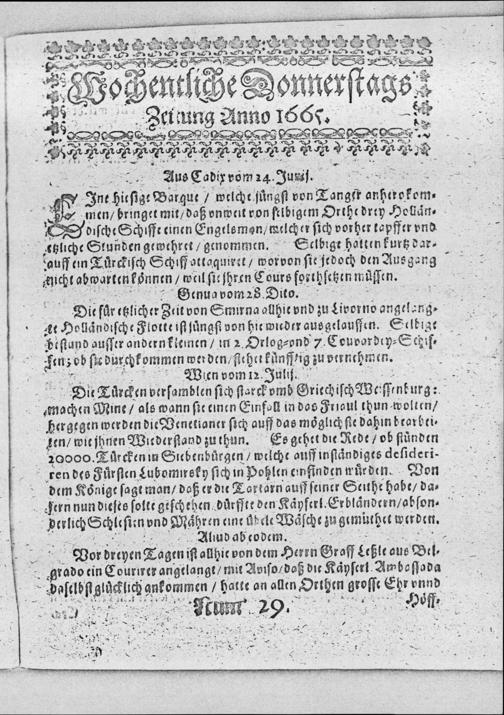 Wochentliche Donnerstags
Zeitung Anno 1665.
Aus Cadix vom 24. Junij.
EJne hiesige Barque / welche jüngst von Tanger anhero kom-
men / bringet mit / daß unweit von selbigem Orthe drey Hollän-
dische Schiffe einen Engelsman / welcher sich vorher tapffer und
etzliche Stunden gewehret / genommen. Selbige hatten kurtz dar-
auff ein Türckisch Schiff attaquiret / worvon sie jedoch den Ausgang
nicht abwarten können / weil sie jhren Cours forthsetzen müssen.
Genua vom 28. Dito.
Die für etzlicher Zeit von Smirna allhie und zu Livorno angelang-
te Holländische Flotte ist jüngst von hie wieder ausgelauffen. Selbige
bestund ausser andern kleinen / in 2. Orlog- und 7. Couvordey-Schif-
fen; ob sie durchkommen werden / stehet künfftig zu vernehmen.
Wien vom 12. Julij.
Die Türcken versamblen sich starck umb Griechisch Weissenburg:
machen Mine / als wann sie einen Einfall in das Friaul thun wolten /
hergegen werden die Venetianer sich auff das möglichste dahin bearbei-
ten / wie jhnen Wiederstand zu thun. Es gehet die Rede / ob stünden
20000. Türcken in Siebenbürgen / welche auff inständiges desideri-
ren des Fürsten Lubomirsky sich in Pohlen einfinden würden. Von
dem Könige sagt man / daß er die Tartarn auff seiner Seithe habe / da-
fern nun dieses solte geschehen / dürffte den Käyserl. Erbländern / abson-
derlich Schlesien und Mähren eine übele Wäsche zu gemüthet werden.
Aliud ab eodem.
Vor dreyen Tagen ist allhie von dem Herrn Graff Leßle aus Bel-
grado ein Courirer angelangt / mit Aviso / daß die Käyserl. Ambassada
daselbst glücklich ankommen / hatte an allen Orthen grosse Ehr unnd
Höff-
Num 29.